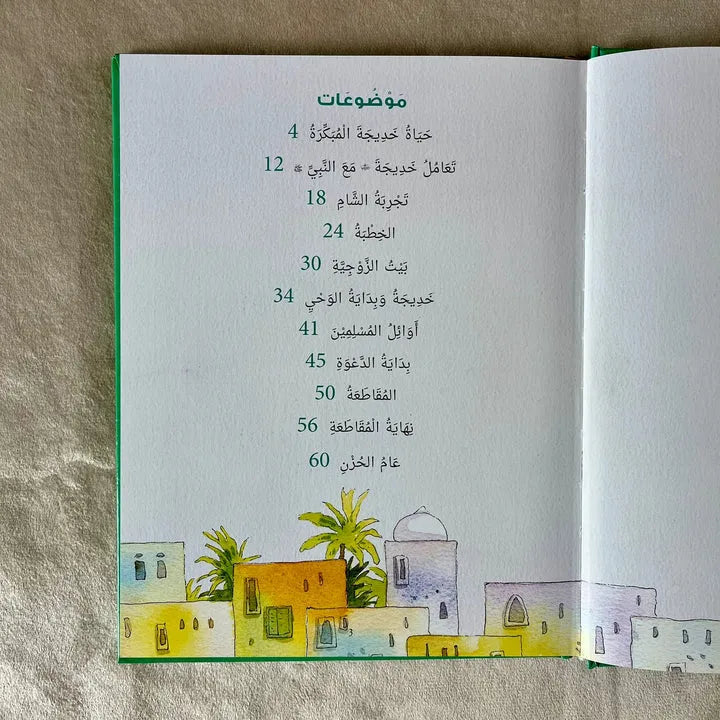 مَوْضُوعَات
حَيَاةُ خَدِيجَةَ الْمُبَكِّرَةُ 4
تَعَامُلُ خَدِيجَةَ مَعَ النَّبِيِّ ﷺ 12
تَجْرِبَةُ الشَّامِ 18
الخِطْبَةُ 24
بَيْتُ الزَّوْجِيَّةِ 30
خَدِيجَةُ وَبِدَايَةُ الوَحْيِ 34
أَوَائِلُ المُسْلِمِيْنَ 41
بِدَايَةُ الدَّعْوَةِ 45
المُقَاطَعَةُ 50
نِهَايَةُ الْمُقَاطَعَةِ 56
عَامُ الحُزْنِ 60
3